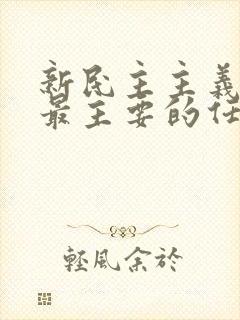 新民主主義
最主要的任
輕風余於